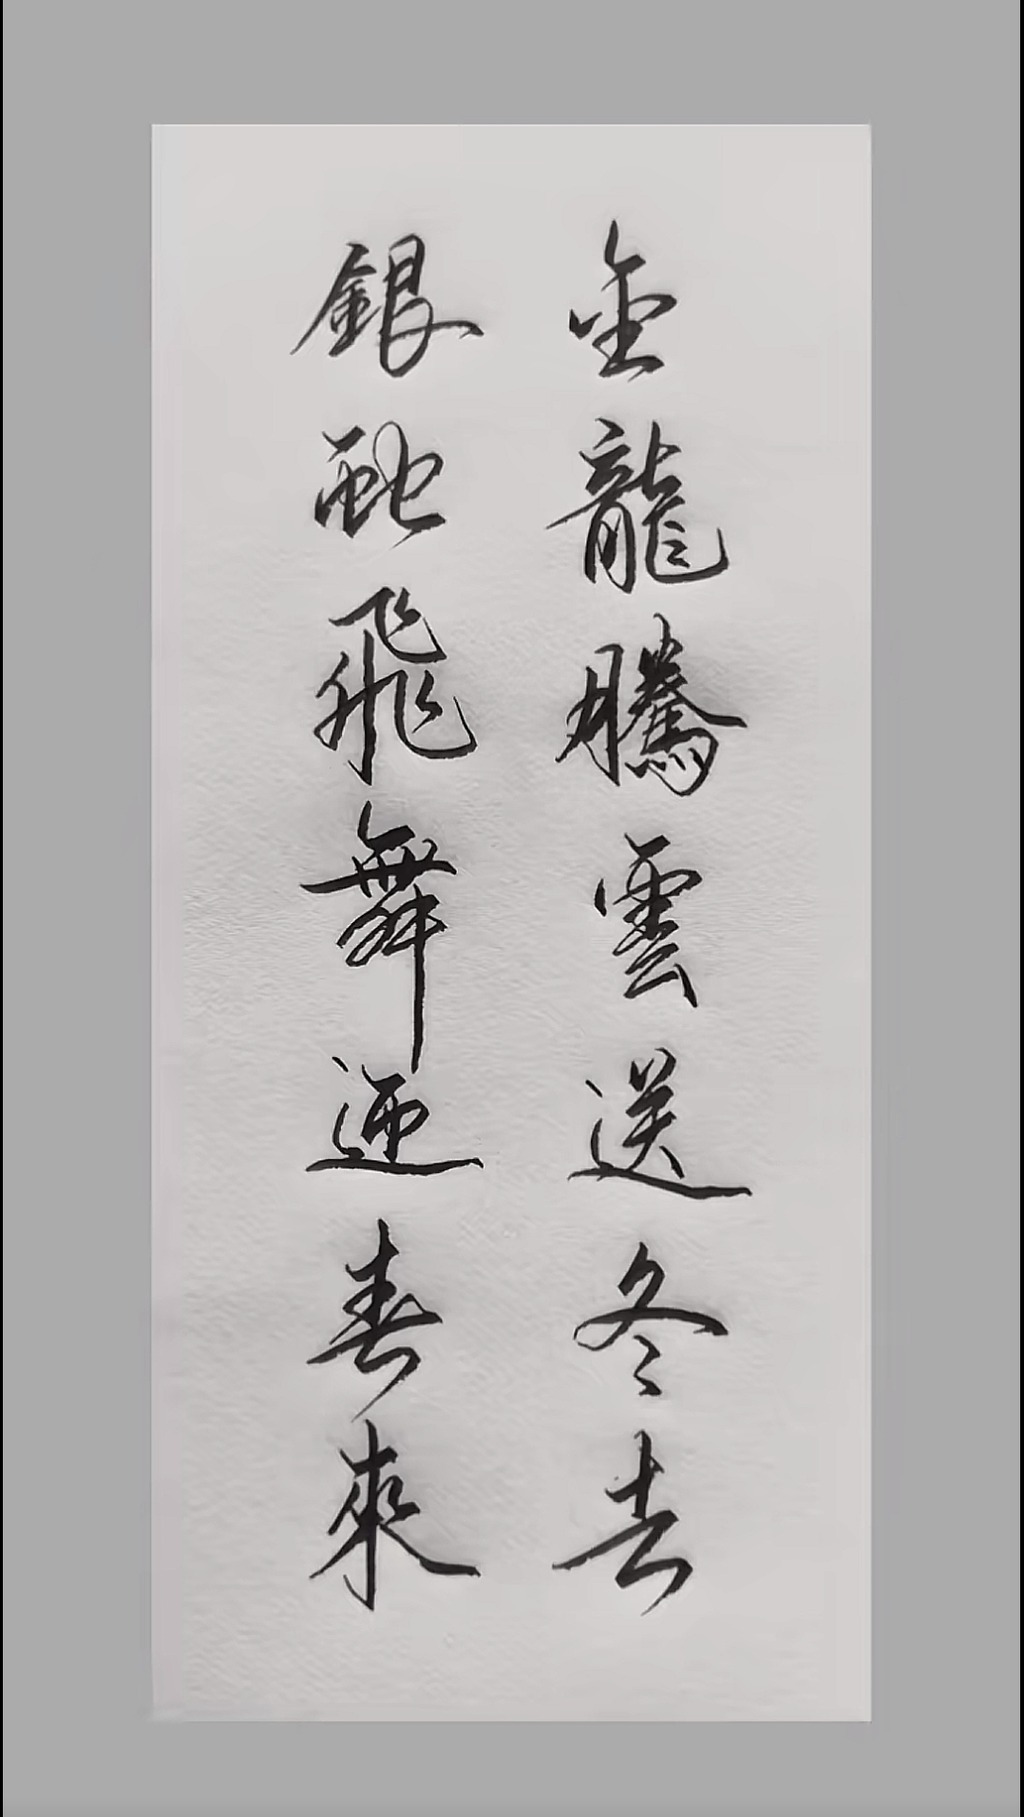 金龍騰雲送冬去
銀蛇飛舞迎春來